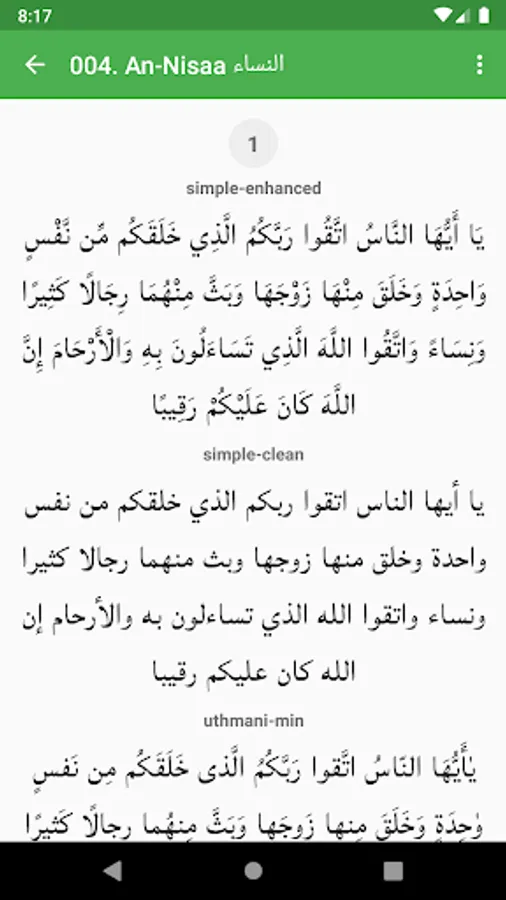 8:17
004. An-Nisaa النساء
1
simple-enhanced
يَا أَيُّهَا النَّاسُ اتَّقُوا رَبَّكُمُ الَّذِي خَلَقَكُم مِّن نَّفْسٍ
وَاحِدَةٍ وَخَلَقَ مِنْهَا زَوْجَهَا وَبَثَّ مِنْهُمَا رِجَالًا كَثِيرًا
وَنِسَاءً وَاتَّقُوا اللَّهَ الَّذِي تَسَاءَلُونَ بِهِ وَالْأَرْحَامَ إِنَّ
اللَّهَ كَانَ عَلَيْكُمْ رَقِيبًا
simple-clean
يا أيها الناس اتقوا ربكم الذي خلقكم من نفس
واحدة وخلق منها زوجها وبث منهما رجالا كثيرا
ونساء واتقوا الله الذي تساءلون به والأرحام إن
الله كان عليكم رقيبا
uthmani-min
يٰأَيُّهَا النّاسُ اتَّقوا رَبَّكُمُ الَّذى خَلَقَكُم مِن نَفسٍ
وٰحِدَةٍ وَخَلَقَ مِنها زَوجَها وَبَثَّ مِنهُما رِجالًا كَثيرًا